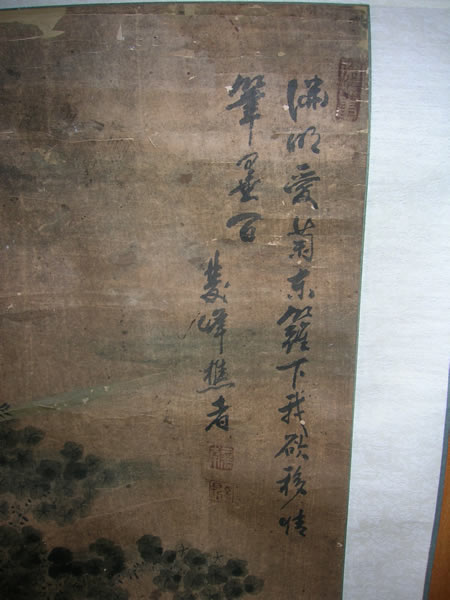 淵明愛菊東籬下我欲移情
筆墨間
峰樵者